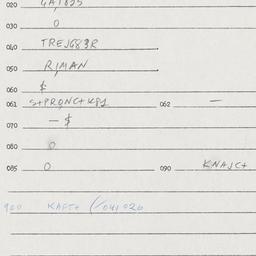 020 GAT825
030 0
040 TREJG83R
050 RIMAN
060 $
061 S+PRONC+K81 062 —
070 — $
080 0
085 0 090 KNAJC+
900 KAFT+ (/041026